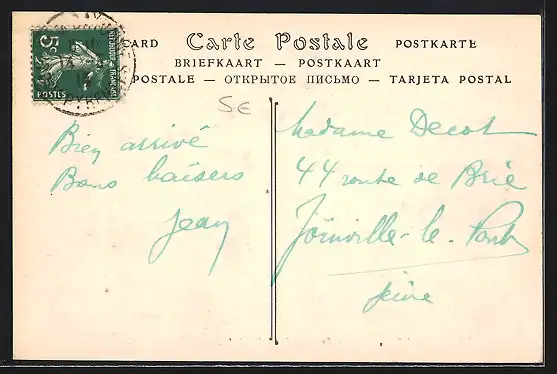 CARD Carte Postale POSTKARTE
BRIEFKAART — POSTKAART
POSTALE — ОТКРЫТОЕ ПИСЬМО — TARJETA POSTAL
5c
POSTES
5E
Bien arrivé
Bons baisers
Jean
Madame Decot
44 route de Brie
Joinville-le-Pont
Seine